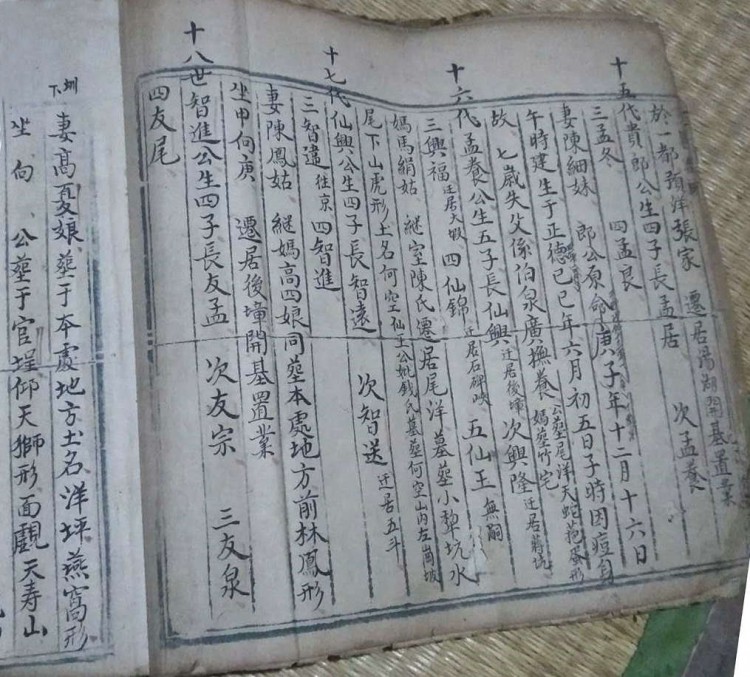 於一都預洋張家 遷居湯湖開基置業
十五代貴郎公生四子長孟居 次孟養
三孟冬 四孟良
妻陳細妹 郎公原命庚子年十二月十六日
午時建生于正德己巳年六月初五日子時因痘身
故 七歲失父係伯泉廣撫養 公塟尾洋天蛇苞蛋形 媽塟竹宅
十六代孟養公生五子長仙興 迁居後墇 次興隆 迁居蔣坑
三興福 迁居大 四仙錦 迁居石碑 五仙王 無嗣
媽馬絹姑 継室陳氏遷居尾洋 墓塟小犁坑水
尾下山虎形土名何空仙王公妣錢氏墓塟何空山内左崗坡
十七代仙興公生四子長智遠 次智送 迁居五斗
三智達 往京 四智進
妻陳鳳姑 継媽高四娘同塟本處地方前林鳳形
坐甲向庚 遷居後墇開基置業
十八世智進公生四子長友孟 次友宗 三友泉
四友尾
圳下
妻高夏娘塟于本處地方土名洋坪燕窩形
坐 向 公塟于官埕仰天獅形面觀天寿山